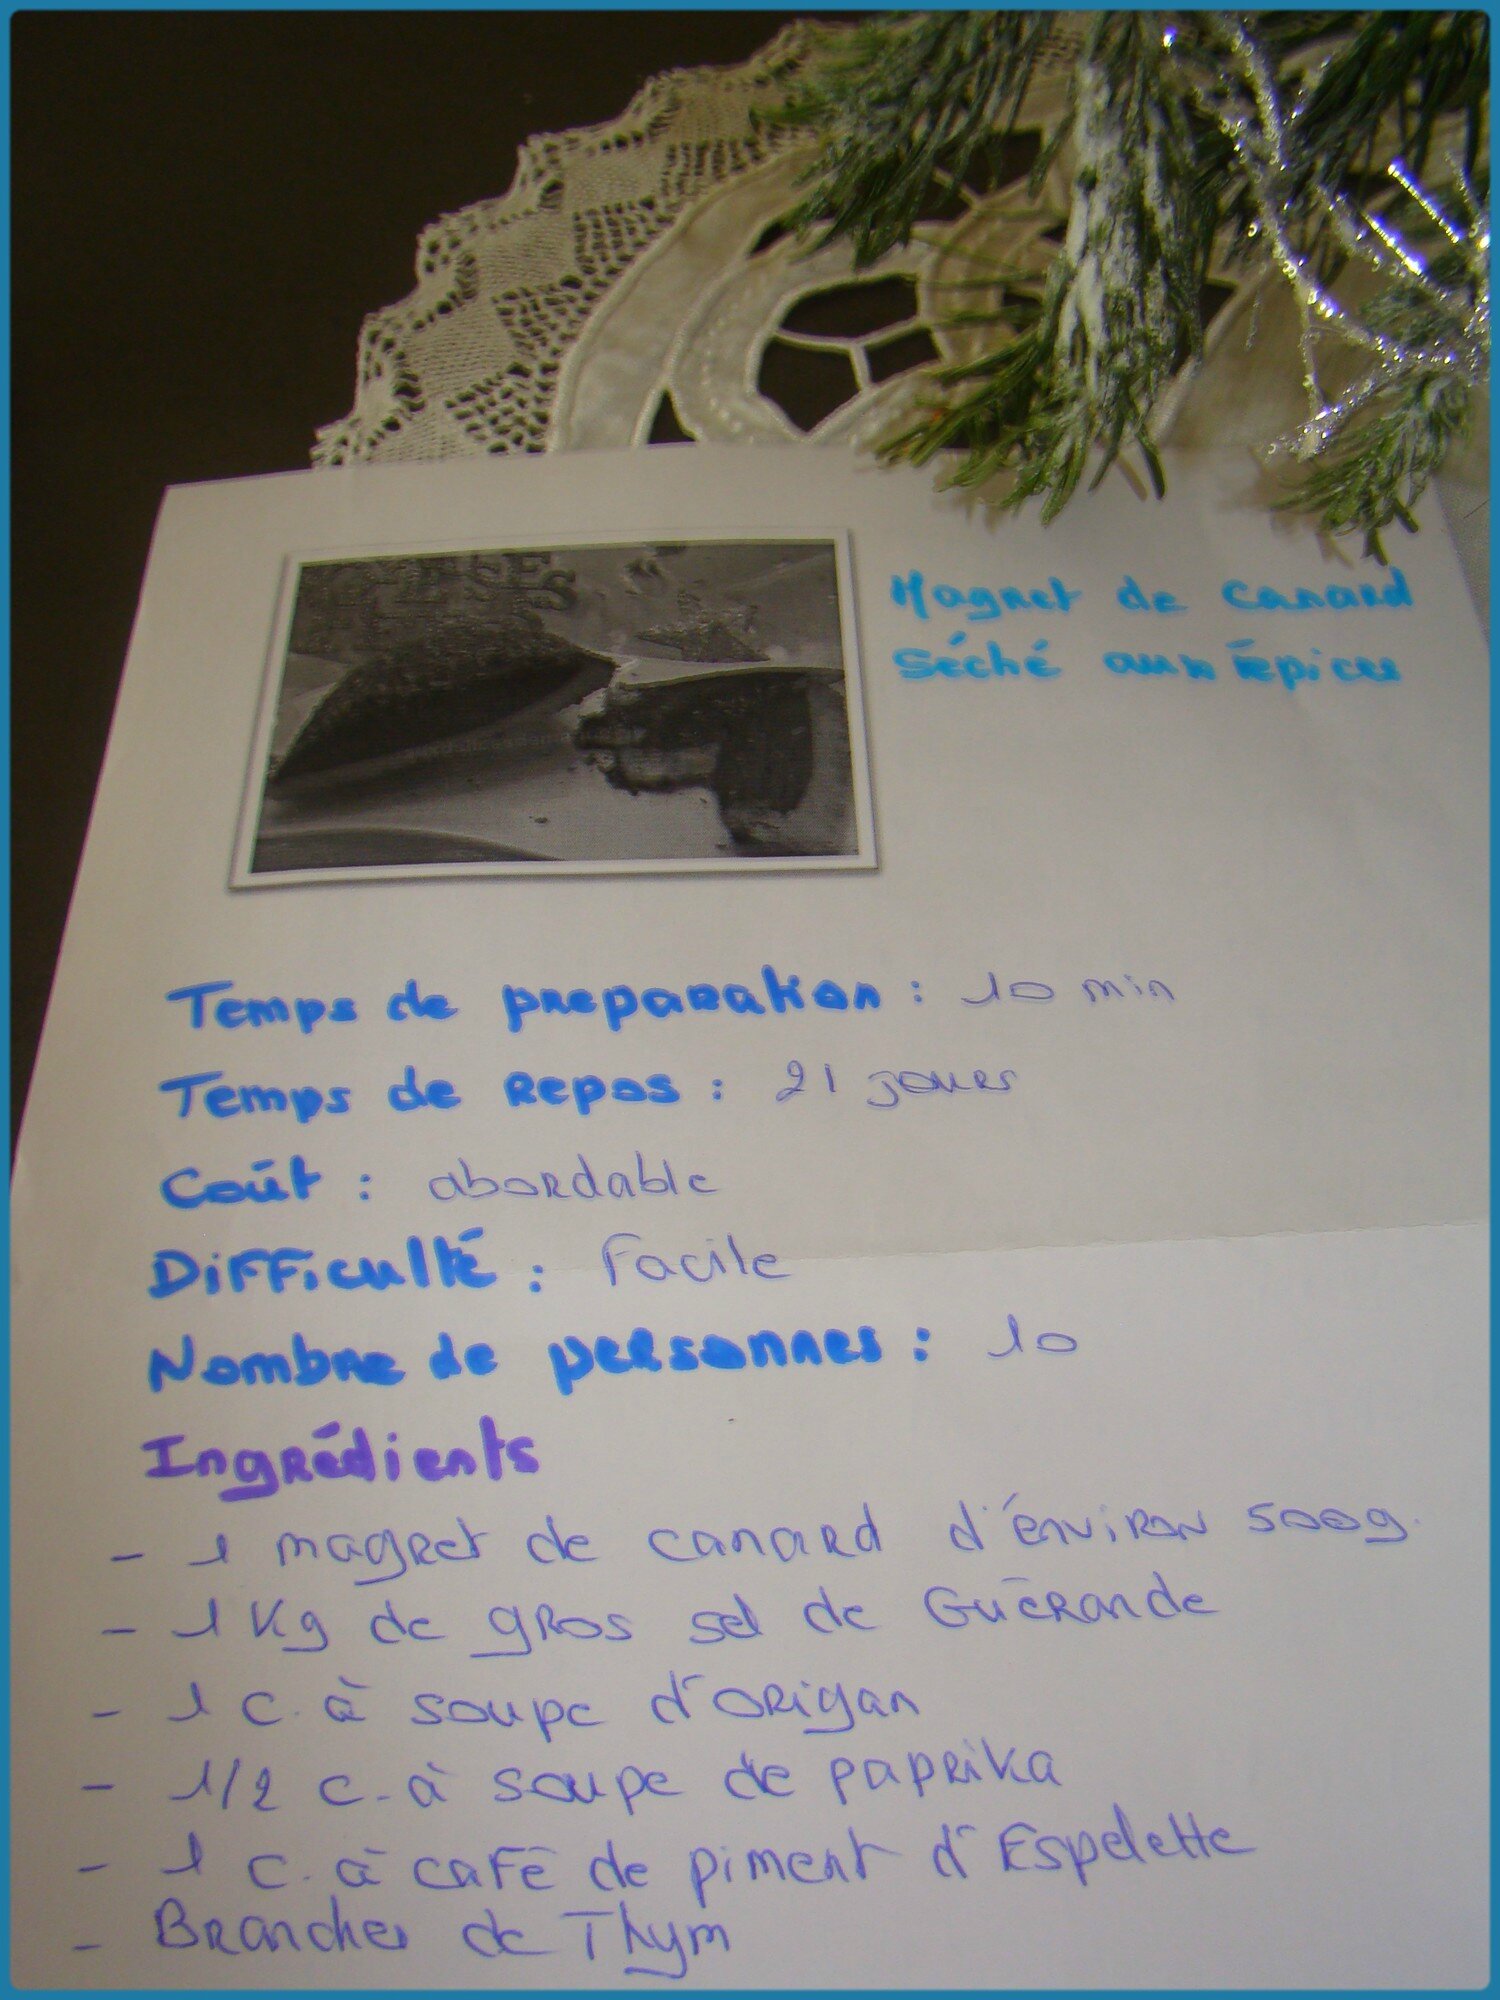 Magret de canard
séché aux épices
Temps de preparation : 10 min
Temps de repos : 21 jours
Coût : abordable
Difficulté : Facile
Nombre de personnes : 10
Ingrédients
- 1 magret de canard d'environ 500g.
- 1 Kg de gros sel de Guérande
- 1 c. à soupe d'origan
- 1/2 c. à soupe de paprika
- 1 c. à café de piment d'Espelette
- Branches de Thym